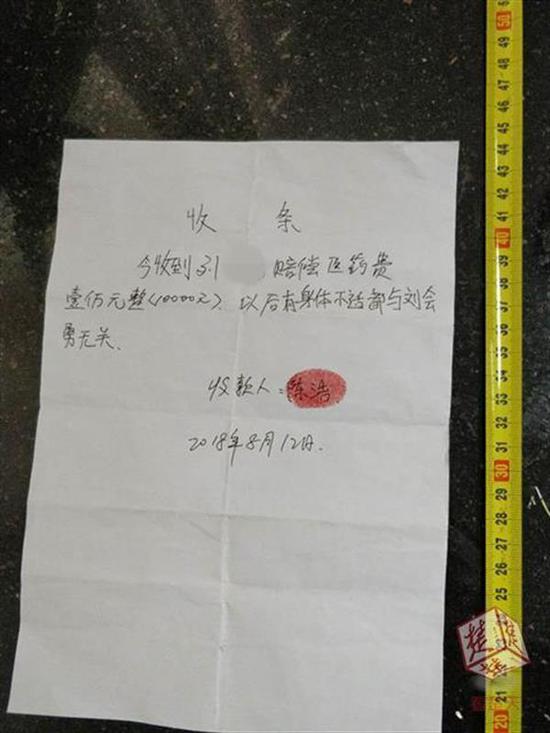 收 条
今收到 赔偿医药费
壹仿元整(10000元)、以后有身体不适都与刘会
勇无关、
收款人:陈浩
2018年8月12日.
50
49
48
47
46
45
44
43
42
41
40
39
38
37
36
35
34
33
32
31
30
29
28
27
26
25
24
21
20
楚